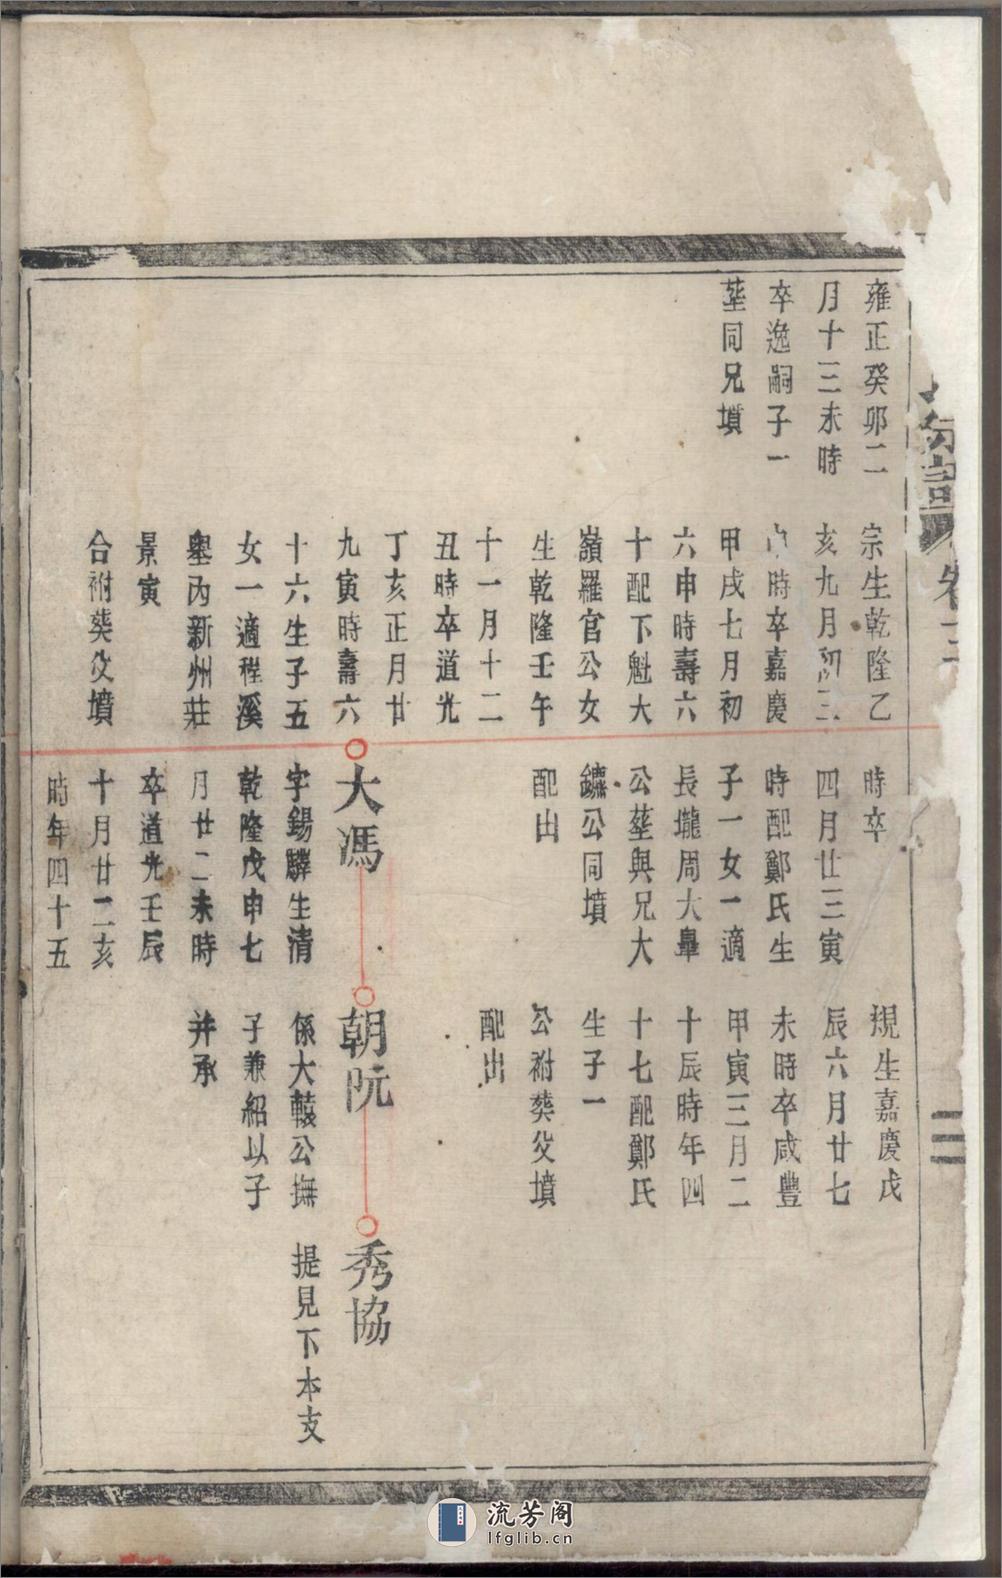 雍正癸卯二
月十三未時
卒逸嗣子一
塟同兄墳
宗生乾隆乙
亥九月初三
時卒嘉慶
甲戌七月初
六申時壽六
十配下魁大
嶺羅官公女
生乾隆壬午
十一月十二
丑時卒道光
丁亥正月廿
九寅時壽六
十六生子五
女一適程溪
墺內新州莊
景寅
合祔葬父墳
時卒
四月廿三寅
時配鄭氏生
子一女一適
長壠周大臯
公塟與兄大
鑣公同墳
配出
大馮
字錫驎生清
乾隆戊申七
月廿二未時
卒道光壬辰
十月廿二亥
時年四十五
現生嘉慶戊
辰六月廿七
未時卒咸豐
甲寅三月二
十辰時年四
十七配鄭氏
生子一
公祔葬父墳
配出
朝阮
係大轅公撫
子兼紹以子
并承
秀協
提見下本支
譜
卷
三
流芳阁
lfglib.cn